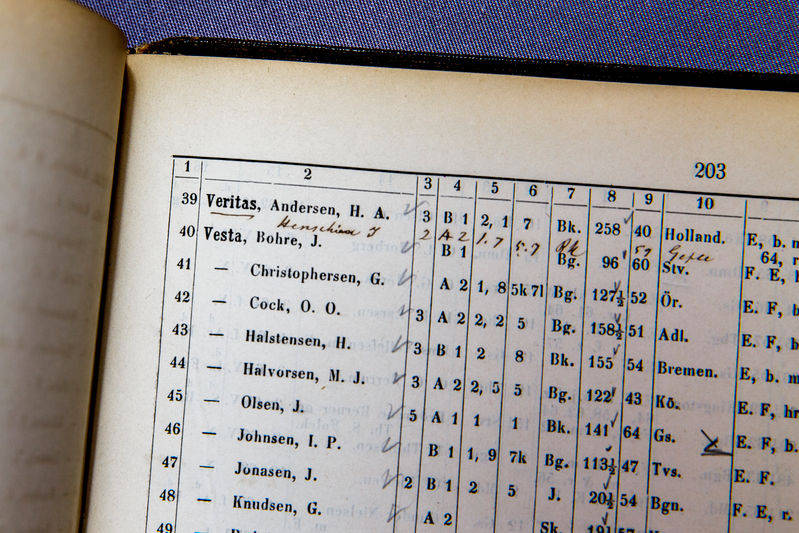 203
1 2 3 4 5 6 7 8 9 10
39 Veritas, Andersen, H. A. 3 B 1 2, 1 7 Bk. 258 40 Holland. E, b. m
2 A 2 1.7 5.7 Bk 59 Gefle 64, r
40 Vesta, Bohre, J. B 1 Bg. 96 60 Stv. F. E, b
41 — Christophersen, G. A 2 1, 8 5k 7l Bg. 127½ 52 Ör. E. F, b
42 — Cock, O. O. 3 A 2 2, 2 5 Bg. 158½ 51 Adl. E. F, b
43 — Halstensen, H. 3 B 1 2 8 Bk. 155 54 Bremen. E, b. m
44 — Halvorsen, M. J. 3 A 2 2, 5 5 Bg. 122 43 Kö. E. F, hr
45 — Olsen, J. 5 A 1 1 1 Bk. 141 64 Gs. E. F, b.
46 — Johnsen, I. P. B 1 1, 9 7k Bg. 113½ 47 Tvs. E. F.
47 — Jonasen, J. 2 B 1 2 5 J. 20½ 54 Bgn. F. E, r.
48 — Knudsen, G. A 2 Sk.
49